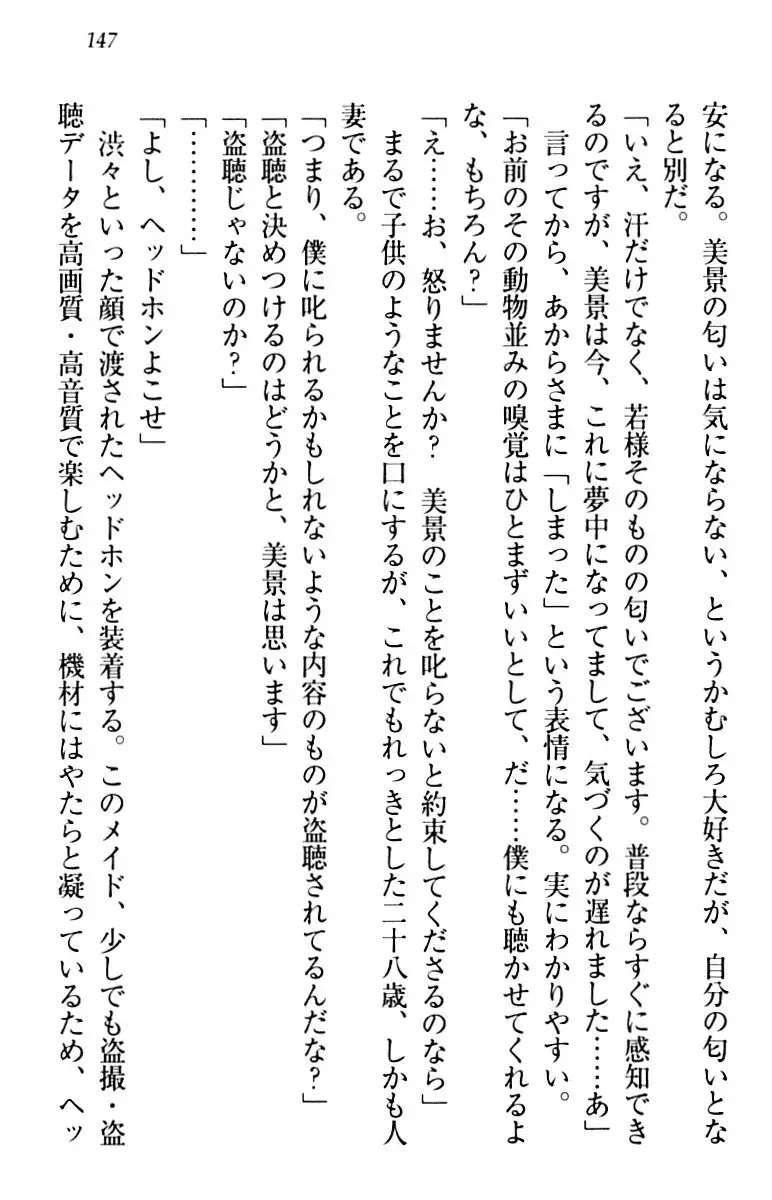 147
安になる。美景の匂いは気にならない、というかむしろ大好きだが、自分の匂いとな
ると別だ。
「いえ、汗だけでなく、若様そのものの匂いでございます。普段ならすぐに感知でき
るのですが、美景は今、これに夢中になってまして、気づくのが遅れました……あ」
言ってから、あからさまに「しまった」という表情になる。実にわかりやすい。
「お前のその動物並みの嗅覚はひとまずいいとして、だ……僕にも聴かせてくれるよ
な、もちろん？」
「え……お、怒りませんか？　美景のことを叱らないと約束してくださるのなら」
まるで子供のようなことを口にするが、これでもれっきとした二十八歳、しかも人
妻である。
「つまり、僕に叱られるかもしれないような内容のものが盗聴されてるんだな？」
「盗聴と決めつけるのはどうかと、美景は思います」
「盗聴じゃないのか？」
「…………」
「よし、ヘッドホンよこせ」
渋々といった顔で渡されたヘッドホンを装着する。このメイド、少しでも盗撮・盗
聴データを高画質・高音質で楽しむために、機材にはやたらと凝っているため、ヘッ